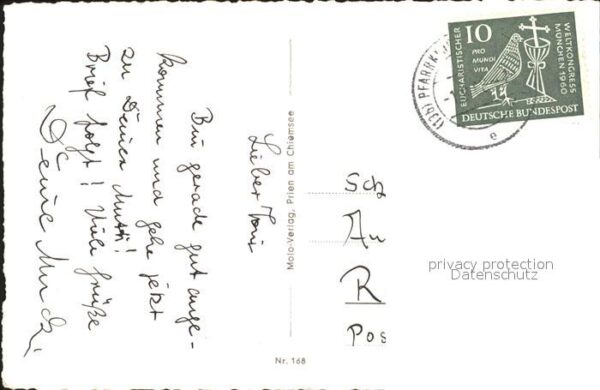 Lieber Toni
Bin gerade gut ange-
kommen und gehe jetzt
zu Deiner Mutti!
Brief folgt! Viele Grüße
Deine
Molo-Verlag, Prien am Chiemsee
Nr. 168
EUCHARISTISCHER
WELTKONGRESS
MÜNCHEN 1960
10
PRO
MUNDI
VITA
DEUTSCHE BUNDESPOST
(13b) PFARRK
e
Sch
An
R
Pos
privacy protection
Datenschutz